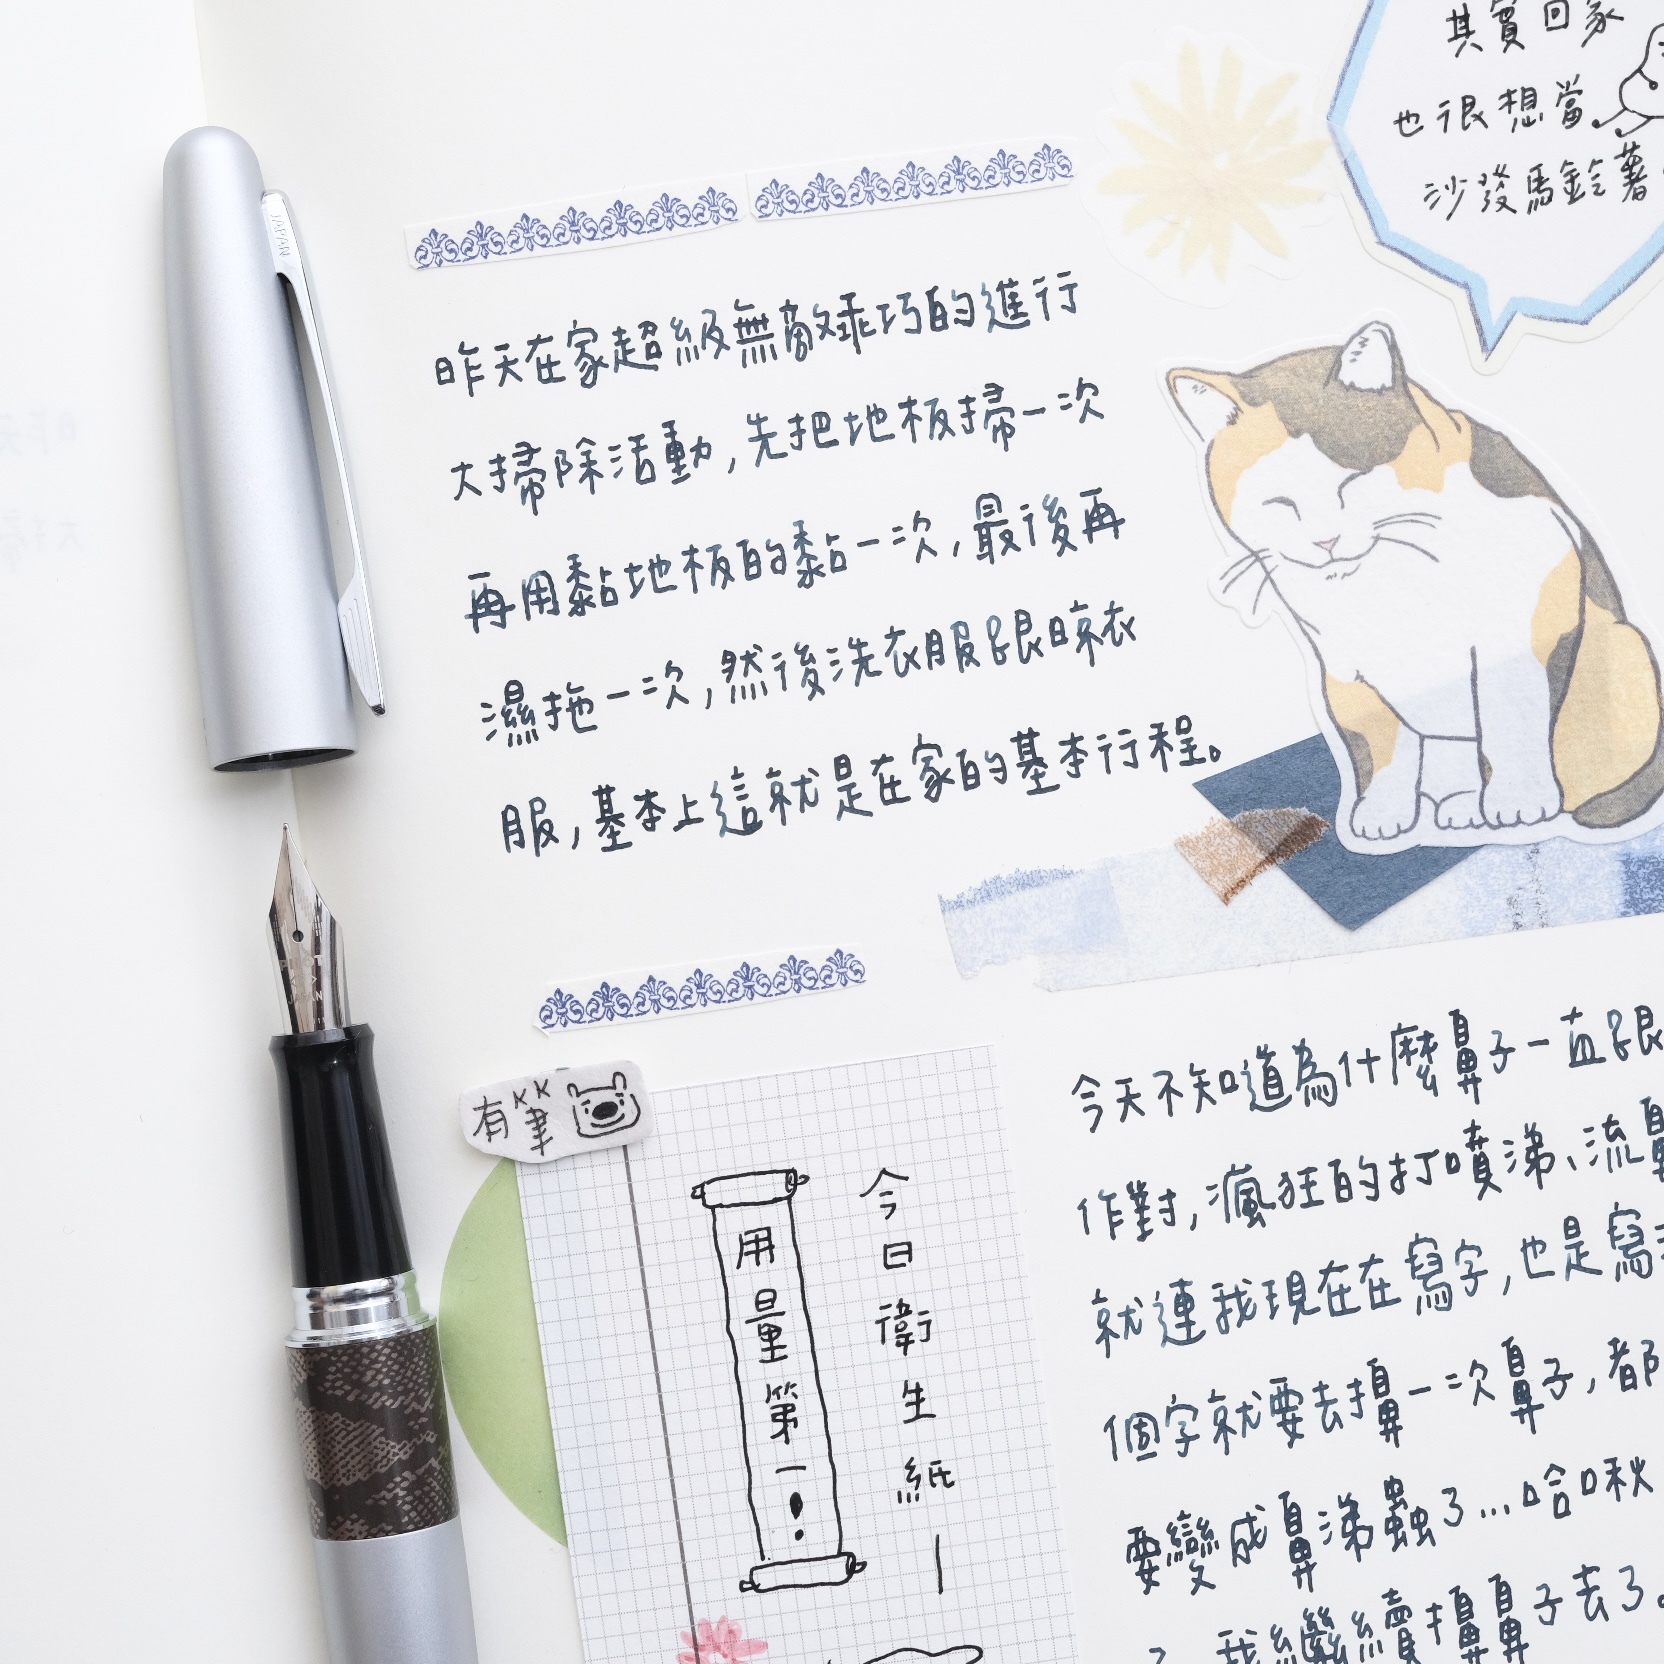 其實回家
也很想當
沙發馬鈴薯
JAPAN
昨天在家超級無敵乖巧的進行
大掃除活動，先把地板掃一次
再用黏地板的黏一次，最後再
濕拖一次，然後洗衣服跟晾衣
服，基本上這就是在家的基本行程。
PILOT
JAPAN
有筆
今日衛生紙｜
用量第一！
今天不知道為什麼鼻子一直跟
作對，瘋狂的打噴涕、流鼻
就連我現在在寫字，也是寫
個字就要去擤一次鼻子，都
要變成鼻涕蟲了...哈啾
我繼續擤鼻子去了。